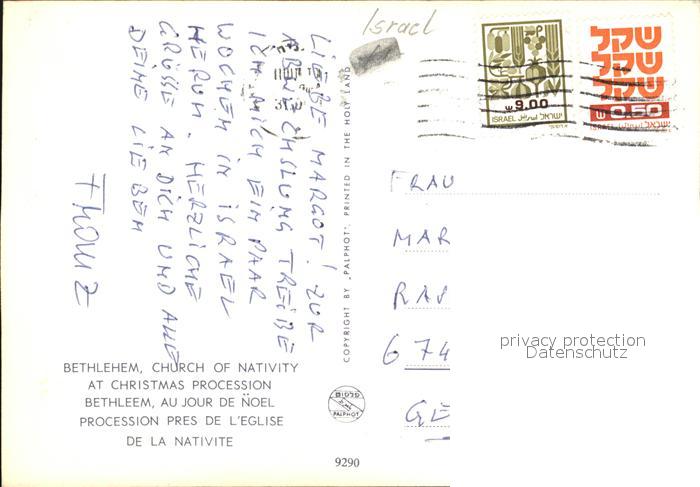 Israel
LIEBE MARGOT! ZUR
ABWECHSLUNG TREIBE
ICH MICH EIN PAAR
WOCHEN IN ISRAEL
HERUM. HERZLICHE
GRÜSSE AN DICH UND ALLE
DEINE LIEBEN
9.00
ISRAEL اسرائيل ישראל
שקל
שקל
שקל
0.50
ISRAEL اسرائيل ישראל
FRAU
MAR
RAS
674
GE
privacy protection
Datenschutz
COPYRIGHT BY „PALPHOT", PRINTED IN THE HOLY LAND
BETHLEHEM, CHURCH OF NATIVITY
AT CHRISTMAS PROCESSION
BETHLEEM, AU JOUR DE NOEL
PROCESSION PRES DE L'EGLISE
DE LA NATIVITE
פלפוט
PALPHOT
9290